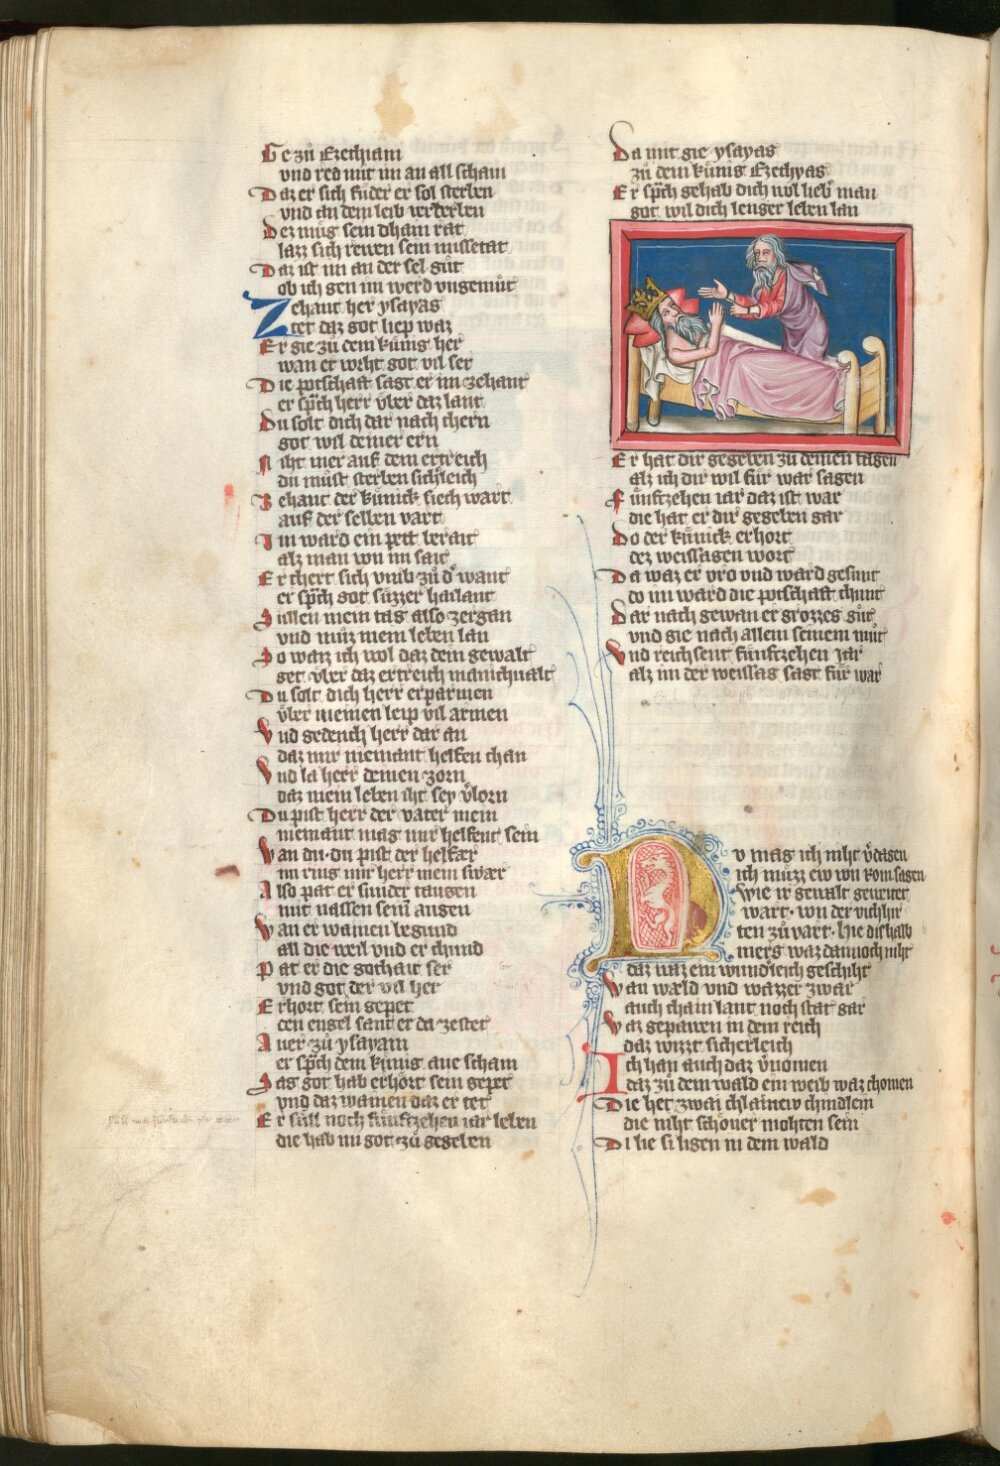 Ge zu Ezechiam
vnd red mit im an all scham
Daz er sich fuder er sol sterben
vnd an dem leib verderben
Dez mug sein dham rat
lazz sich rewen sein missetat
Daz ist im an der sel gůt
ob ich gen im werd vngemůt
Zehant her ysayas
tet daz got liep waz
Er gie zů dem kůnig her
wan er worht got vil ser
Die potschaft sagt er im zehant
er sp̄ch herr vber daz lant
Du solt dich dar nach chern
got wil deiner ern
Niht mer auf dem ertreich
du můst sterben sich̄leich
Zehant der kůnick siech wart
auf der selben vart
Im ward ein pett berait
alz man von im sait
Er chert sich vmb zů d̉ want
er sp̄ch got sůzzer hailant
Sullen mein tag also zergan
vnd můz mein leben lan
So waiz ich wol daz dein gewalt
get vber daz ertreich manichualt
Du solt dich herr erparmen
vber meinen leip vil armen
Vnd gedench herr dar an
daz mir niemant helfen chan
Vnd la herr deinen zorn
daz mein leben iht sey v̉lorn
Du pist herr der vater mein
niemant mag mir helfent sein
Wan du du pist der helfær
nu ring mir herr mein swær
Also pat er sunder taugen
mit nassen sein̄ augen
Wan er wainen begund
all die weil vnd er chund
Pat er die gothait ser
vnd got der vil her
Erhort sein gepet
den engel sant er da zestet
Auer zů ysayam
er sp̄ch dem kůnig ane scham
Sag got hab erhört sein gepet
vnd daz wainen daz er tet
Er sůll noch fůnftzehen iar leben
die hab im got zů gegeben
Da mit gie ysayas
zů dem kůnig Ezechyas
Er sp̄ch gehab dich wol lieb̉ man
got wil dich lenger leben lan
Er hat dir gegeben zů deinen tagen
alz ich dir wil fůr war sagen
Fůnftzehen iar daz ist war
die hat er dir gegeben gar
Do der kůnick erhort
dez weissagen wort
Da waz er vro vnd ward gesunt
do im ward die potschaft chunt
Dar nach gewan er grozzes gůt
vnd gie nach allem seinem můt
Vnd reichsent fůnftzehen iar
alz im der weissag sagt fůr war
Nu mag ich niht v̉dagen
ich můzz ew von Rom sagen
wie ir gewalt geuetiert
wart von der vich hir
ten zů vart Hie dishalb
merg waz dannoch niht
daz waz ein wund̉leich geschiht
Wan wald vnd wazzer zwar
auch cham lant noch stat gar
Waz gepawen in dem reich
daz wizzt sicherleich
Ich han auch daz v̉nomen
daz zů dem wald ein weib waz chomen
Die het zwai chlainew chindlein
die niht schöner mohten sein
Di lie si ligen in dem wald